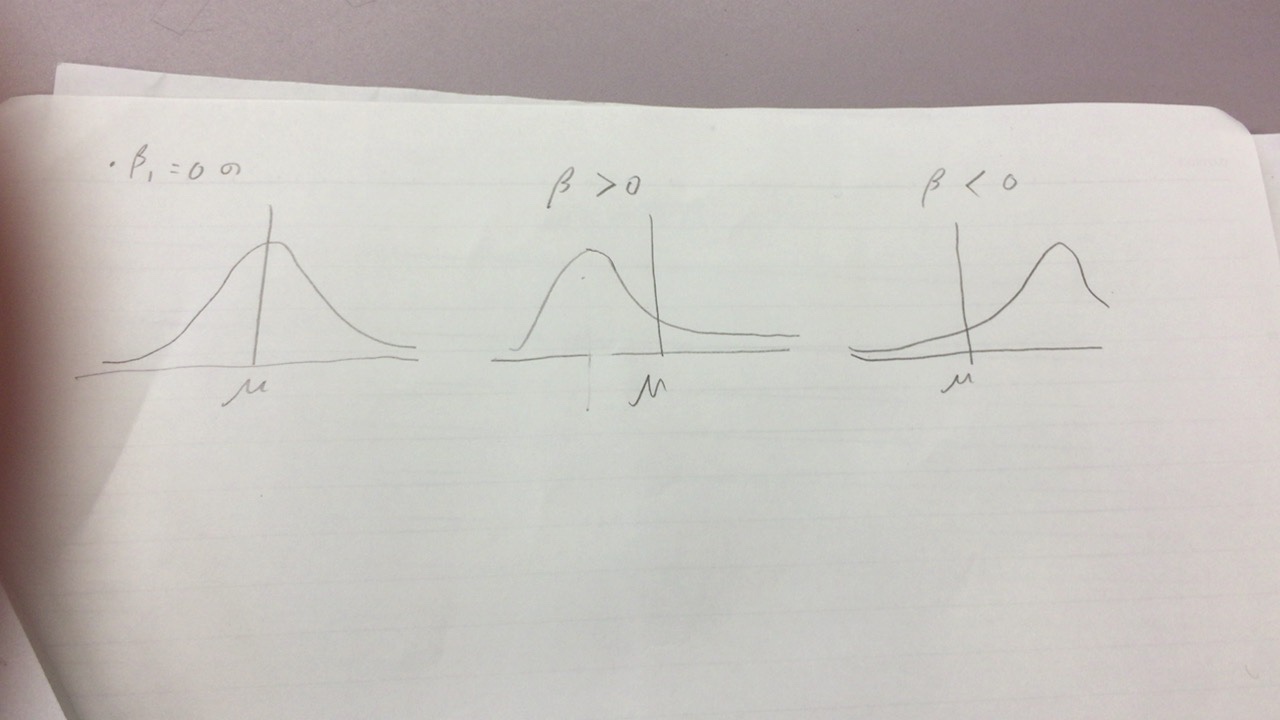 ・β₁ = 0 の
β > 0
β < 0
μ
μ
μ